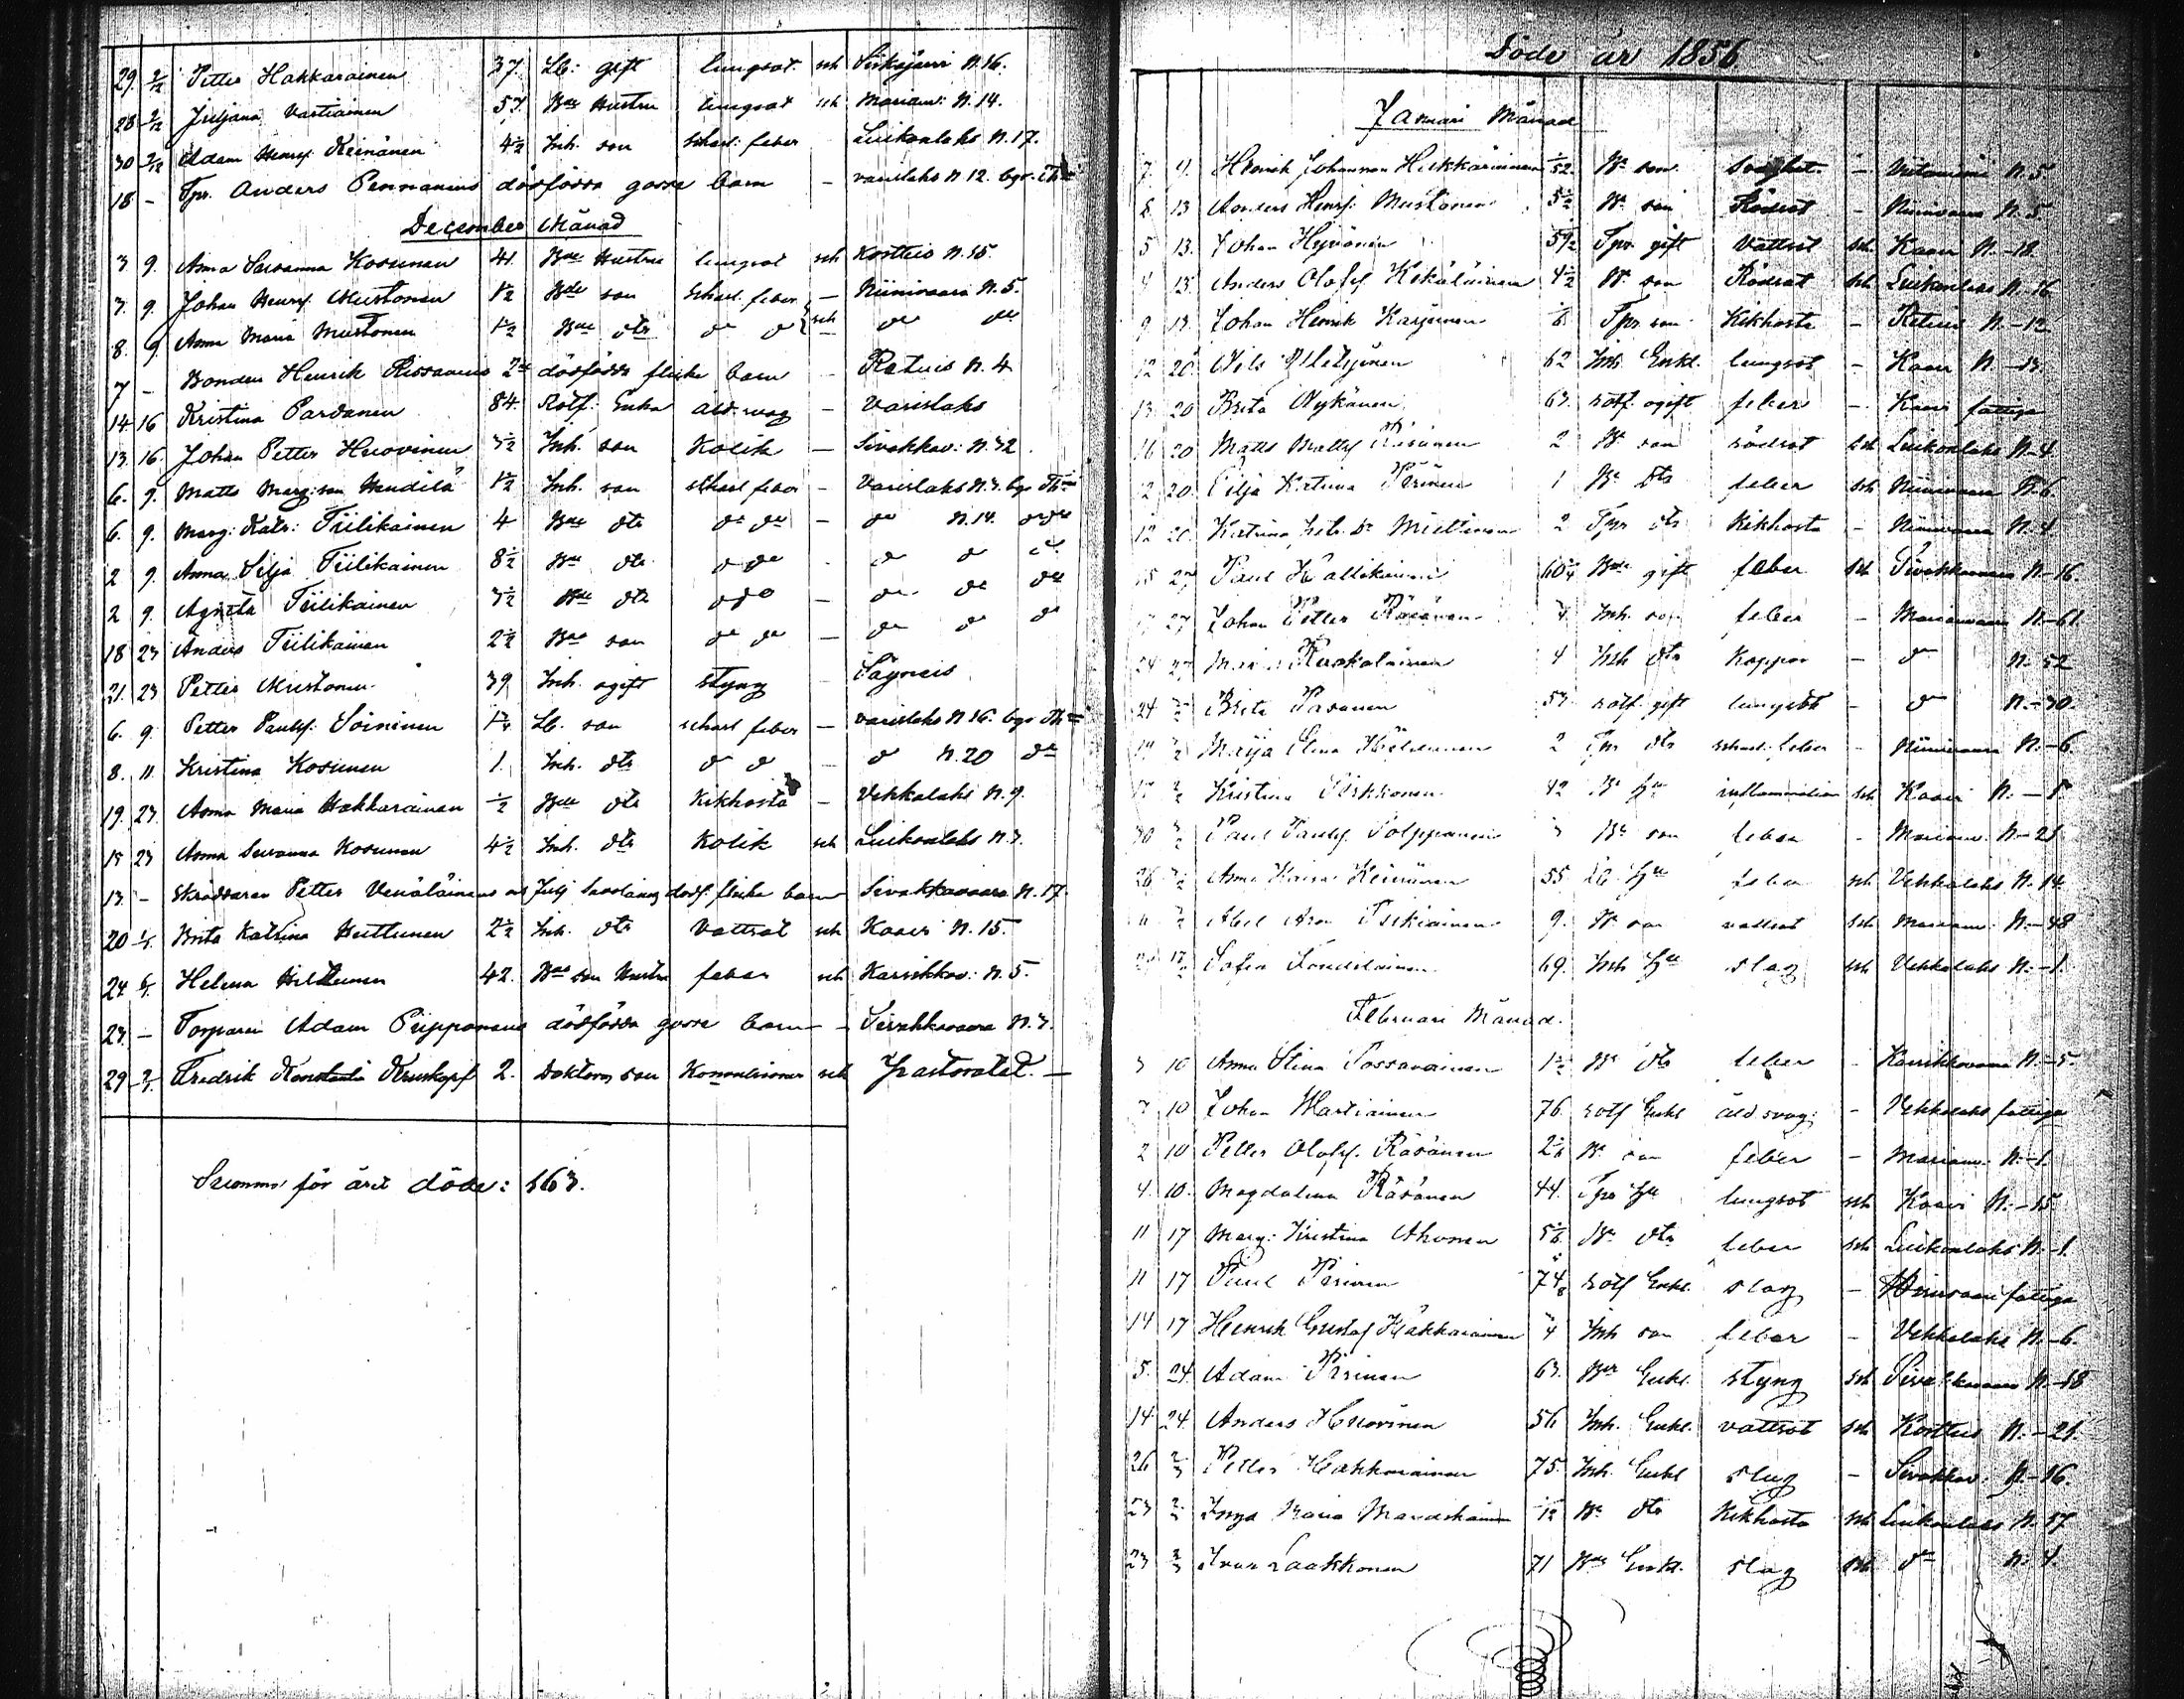 29. 2/12 Petter Hakkarainen 37. Lb: gift lungsot sch Siikajärvi N.16.
28 2/12 Juljana Vartiainen 57. Bde Hustru lungsot sch Mariav: N.14.
30 2/12 Adam Henrf. Keinänen 4½ Inh. son Scharl: feber Luikonlaks N.17.
18 - Tpr. Anders Pennanens dödfödda gosse barn - Varislaks N 12. bgr.
December Månad
3 9. Anna Susanna Kosunen 41. Bde Hustru lungsot sch Kortteis N.15.
3. 9. Johan Henrf. Mustonen 1½ Bde son Scharl. feber - Niinivaara N.5.
8. 9 Anna Maria Mustonen Bde dtr do do sch do do
7 - Bonden Henrik Rissanens dödfödda flicke barn - Ratuis N. 4
14 16 Kristina Parvanen 84. Rotf: Enka åld. svag - Varislaks
13. 16. Johan Petter Huovinen 3½ Inh. son Kolik - Sivakkav: N.32.
6. 9. Matts Marg: son 1½ Inh. son scharl feber - Varislaks N.3. bgr
6. 9. Marg: Katr: Tiilikainen 4 Bde dtr do do - do N.14. do do
2 9. Anna Silja Tiilikainen 8½ Bde dtr do do - do do do
2 9. Agneta Tiilikainen 3½ Bde dtr do do - do do do
18 23 Anders Tiilikainen 2½ Bde son do do - do do do
21. 23 Petter Mustonen 39 Inh. ogift styng - Säyneis
6. 9. Petter Paulsf. Soininen Lb. son scharl feber - Varislaks N 16. bgr
8. 11. Kristina Kosunen 1. Inh. dtr do do - do N.20 do
19. 23. Anna Maria Hakkarainen ½ Bde dtr Kikhosta - Vehkalaks N.9.
15 23 Anna Susanna Kosunen 4½ Inh. dtr Kolik sch Luikonlaks N.3.
13. - Skräddaren Petter Venäläinens dödf. flicke barn - Sivakkavaara N.17.
20 Brita Katrina Huttunen 2½ Inh. dtr Vattsot sch Kaavi N.15.
24 Helena 42. Bde son Hustru feber sch Karsikkov: N.5.
23. - Torparen Adam Piipponens dödfödda gosse barn - Sivakkavaara N.3.
29 Fredrik Konstantin Kruskopf 2. Doktorns son Konvulsioner sch Pastoratet. -
Summa för året döda: 163.
Döde år 1856
Januari Månad
7. 9. Henrik Johannon Hukkarainen Bde son Svaghet - N.5
8 13 Anders Henrf: Mustonen 5½ Bde son Rödsot - Niinivaara N.5.
5 13. Johan Hyvönen Tpr. gift Vattsot sch Kaavi N.-18.
4 13. Anders Olofsf Kekäläinen 4½ Bde son Rödsot sch Luikonlaks N.-16
9 13. Johan Henrik Karjunen Tpr. son Kikhosta - Retuis N.-12
12 20 Nils 62 Inh. Enkl. lungsot - Kaavi N.-13.
13. 20 Brita Nykänen 63. rotf. ogift feber - Kaavi fattiga
16 20 Matts Mattsf Räsänen 2 Bde son rödsot sch Luikonlaks N.-4
12 20. Silja Katrina Pirinen 1 Bde dtr feber sch Niinivaara N.-6.
12 20. Katrina Miettinen 2 Tpr. dtr Kikhosta - Niinivaara N.-4.
15 27 Paul Kallikainen 60 Bde gift feber sch Sivakkavaara N.-16.
27 Johan Petter Räsänen 4 Inh. son feber - Mariavaara N.-61.
24 27. Maria Ruokolainen 4 Inh dtr Koppor - do N.-52
24 Brita Pasanen 57. rotf. gift lungsot - do N.-30.
Maija Elina 2 Tpr dtr scharl: feber - Niinivaara N.-6.
Kristina Pirhkonen 42 Bde Hu inflammation sch Kaavi N.-8
30 Paul Paulsf. Tolppanen 3 Bde son feber - Mariav. N.-21
26 Anna Kaisa Keinänen 55 Lb. Hu feber sch Vehkalaks N.14
Abel Aron Tsekiainen 9. Bde son vattsot sch Mariav: N.-48
Sofia Tondilainen 69. Inh Hu slag sch Vehkalaks N.-1.
Februari Månad.
3 10 Anna Stina Possavainen 1½ Bde dtr feber - Karsikkovaara N.-5.
7. 10 Johan Martiainen 76. rotf Enkl åld svag: - Vehkalaks fattiga
2 10 Petter Olofsf. Räsänen Bde son feber - Mariav: N.-1.
4. 10. Magdalena Räsänen 44. Tpr Hu lungsot sch Kaavi N.-15
11 17 Marg: Kristina Ahonen Bde dtr feber sch Luikonlaks N.-1.
11 17 Paul Pirinen 74 rotf Enkl. slag - Niinivaara fattiga
14 17 Henrik Gustaf Hakkarainen 4 Inh son feber - Vehkalaks N.-6.
5. 24. Adam Pirinen 63. Bde Enkl. styng sch Sivakkavaara N.-18
14 24. Anders Huovinen 56 Inh. Enkl. vattsot sch Kortteis N.-21.
26 2/3 Petter Hakkarainen 75. Inh. Enkl slag - Sivakkav: N.-16.
23 2/3 Inga Maria Bde dtr Kikhosta sch Luikonlaks N.-17
23 2/3 Ivar Laakkonen 71 Bde Enkl. slag sch do N. 4.